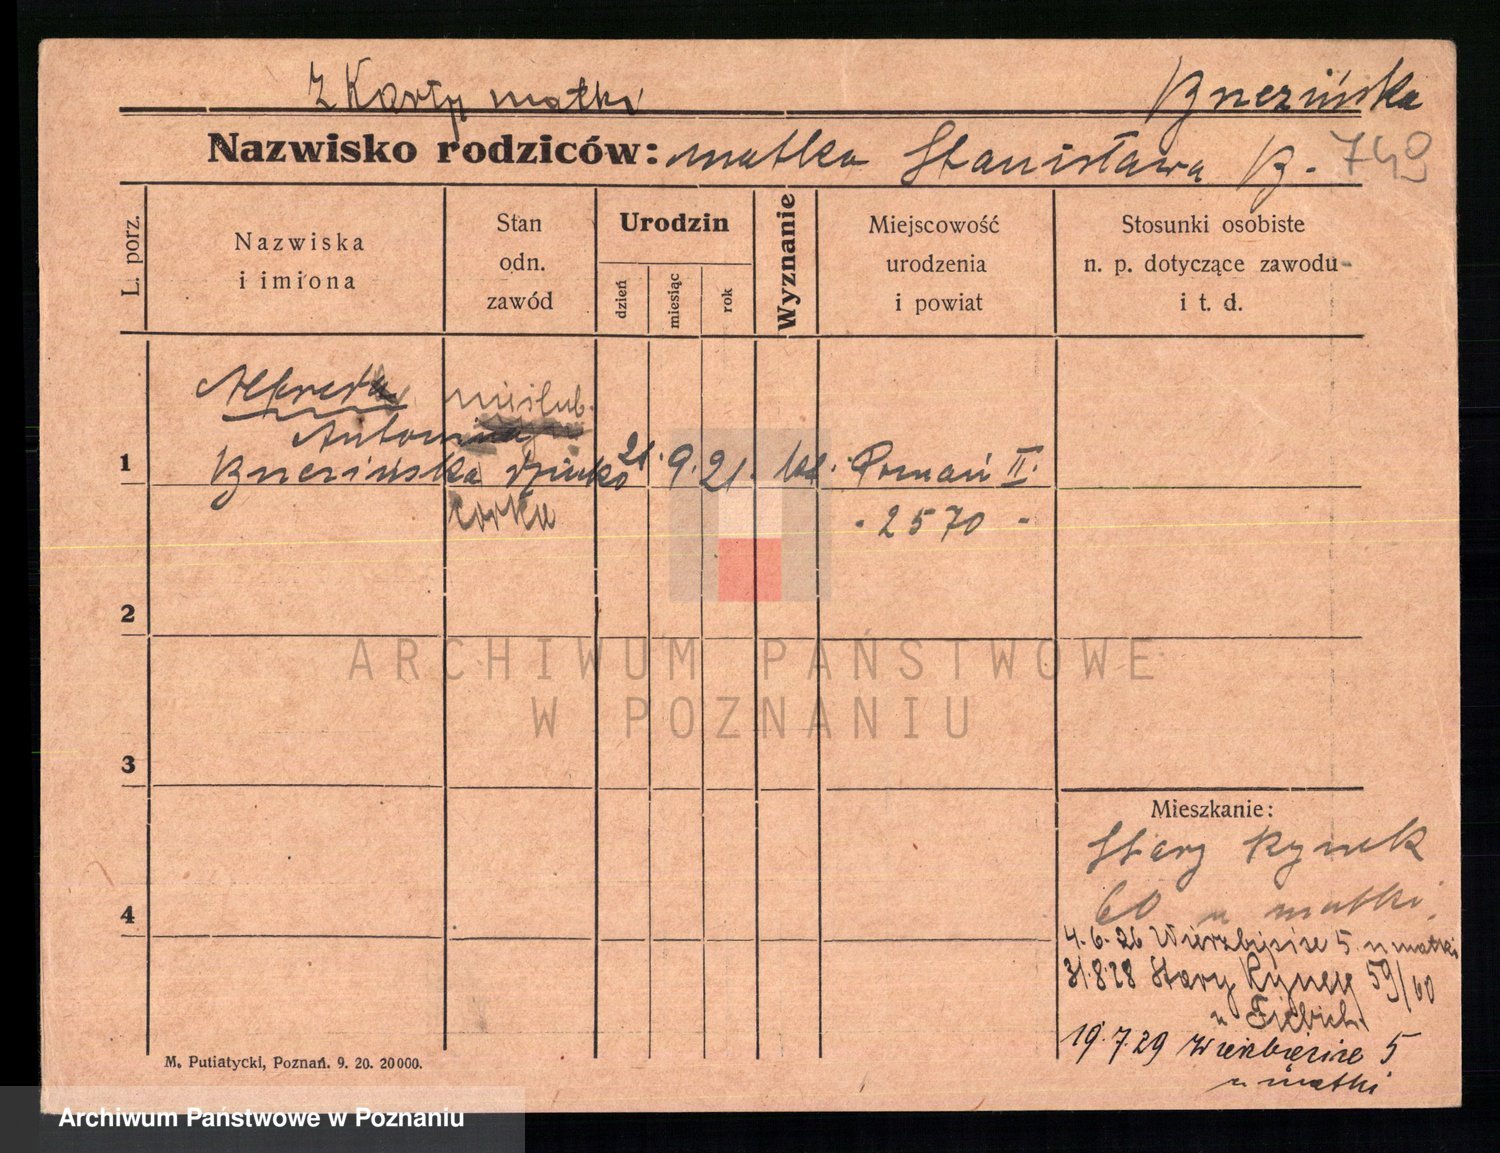 Z Karty matki
Brzezińska
Nazwisko rodziców: matka Stanisława B. 749
L. porz.
Nazwiska
i imiona
Stan
odn.
zawód
Urodzin
dzień
miesiąc
rok
Wyznanie
Miejscowość
urodzenia
i powiat
Stosunki osobiste
n. p. dotyczące zawodu
i t. d.
Alfreda
nieślub.
Antonina
1 dziecko 21. 9. 21. kat. Poznań II.
córka
- 2570 -
2
3
4
ARCHIWUM PAŃSTWOWE
W POZNANIU
Mieszkanie:
Stary Rynek
60 u matki.
4.6.26 Wierzbięcice 5 u matki
31.8.28 Stary Rynek 59/60
u
19.7.29 Wierzbięcice 5
u matki
M. Putiatycki, Poznań. 9. 20. 20000.
Archiwum Państwowe w Poznaniu